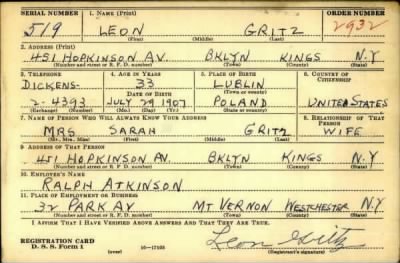 SERIAL NUMBER 1. NAME (Print) ORDER NUMBER
519 LEON GRITZ 2932
(First) (Middle) (Last)
2. ADDRESS (Print)
451 HOPKINSON AV. BKLYN KINGS N.Y
(Number and street or R. F. D. number) (Town) (County) (State)
3. TELEPHONE 4. AGE IN YEARS 5. PLACE OF BIRTH 6. COUNTRY OF CITIZENSHIP
DICKENS- 33 LUBLIN
DATE OF BIRTH (Town or county)
2-4393 JULY 29 1907 POLAND UNITED STATES
(Exchange) (Number) (Mo.) (Day) (Yr.) (State or country)
7. NAME OF PERSON WHO WILL ALWAYS KNOW YOUR ADDRESS 8. RELATIONSHIP OF THAT PERSON
MRS SARAH GRITZ WIFE
(Mr., Mrs., Miss) (First) (Middle) (Last)
9. ADDRESS OF THAT PERSON
451 HOPKINSON AV. BKLYN KINGS N.Y
(Number and street or R. F. D. number) (Town) (County) (State)
10. EMPLOYER'S NAME
RALPH ATKINSON
11. PLACE OF EMPLOYMENT OR BUSINESS
32 PARK AV MT VERNON WESTCHESTER N.Y
(Number and street or R. F. D. number) (Town) (County) (State)
I AFFIRM THAT I HAVE VERIFIED ABOVE ANSWERS AND THAT THEY ARE TRUE.
REGISTRATION CARD
D. S. S. Form 1 (over) 16—17105 Leon Gritz
(Registrant's signature)